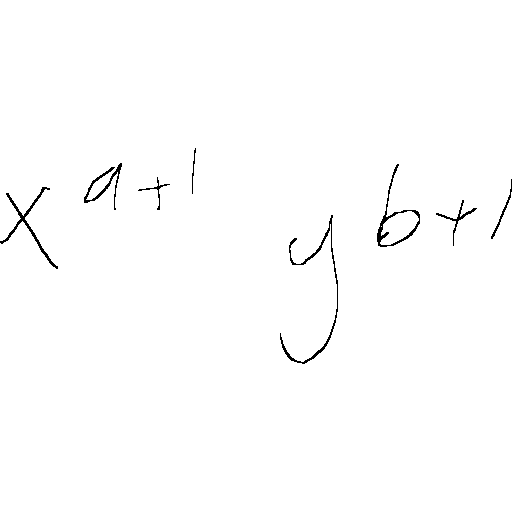 x^{a+1} y^{b+1}